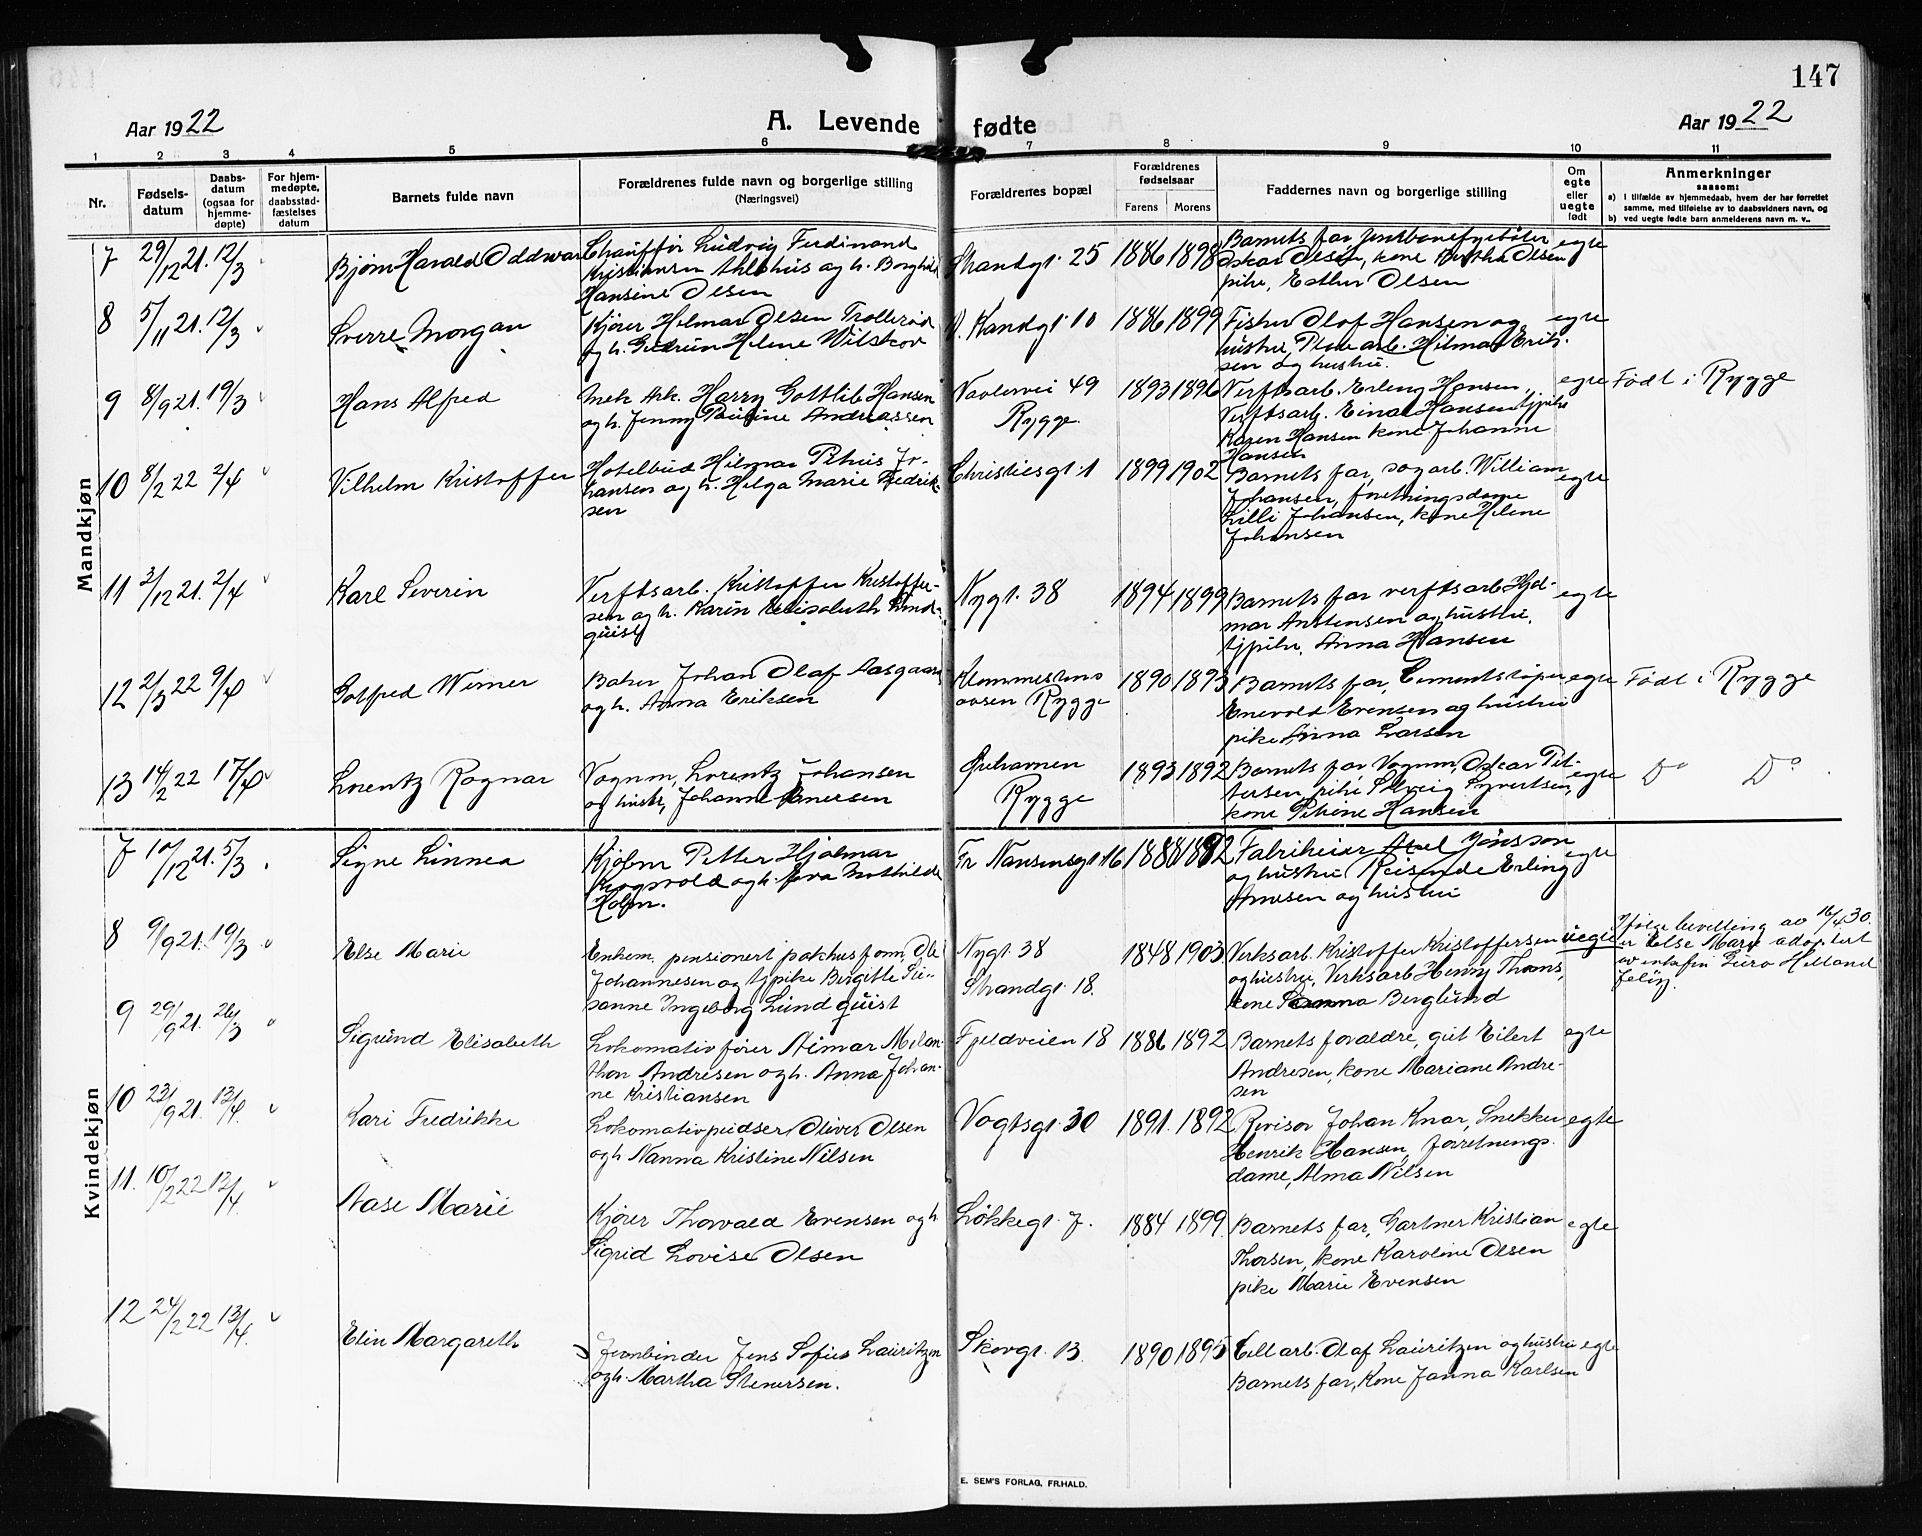 147
Aar 1922
A. Levende fødte
Aar 1922
1 2 3 4 5 6 7 8 9 10 11
Nr.
Fødsels-
datum
Daabs-
datum
(ogsaa for
hjemme-
døpte)
For hjem-
medøpte,
daabsstad-
fæstelses
datum
Barnets fulde navn
Forældrenes fulde navn og borgerlige stilling
(Næringsvei)
Forældrenes bopæl
Forældrenes
fødselsaar
Farens Morens
Faddernes navn og borgerlige stilling
Om
egte
eller
uegte
født
Anmerkninger
saasom:
a) I tilfælde av hjemmedaab, hvem der har forrettet
samme, med tilføielse av to daabsvidners navn, og
b) ved uegte fødte barn anmelderens navn m. v.
Mandkjøn
7 29/12 21. 12/3
Bjørn Harald Oddvar
Chauffør Ludvig Ferdinand
Kristiansen Ahlehus og h. Borghild
Hansine Olsen
Strandgt. 25
1886 1898
Barnets far
Oskar Olsen, kone Olsen
pike, Esther Olsen
egte
8 5/11 21. 12/3
Sverre Morgan
Kjører Hilmar Olsen Trollerød
og h. Gudrun Helene Wilskov
Kandgt. 10
1886 1899
Fisker Olof Hansen og
hustru, arb. Hilmar Erik-
sen og hustru.
egte
9 8/9 21. 19/3
Hans Alfred
Mek Arb. Harry Gottlib Hansen
og h. Jenny Pauline Andreassen
Navlervei 49
Rygge.
1893 1896
Verftsarb. Erling Hansen,
Verftsarb. Einar Hansen tjpike
Karen Hansen kone Johanne
Hansen
egte
Født i Rygge
10 8/2 22 2/4
Vilhelm Kristoffer
Hotelbud Hilmar Petrus Jo-
hansen og h. Helga Marie Fredrik-
sen
Christiesgt. 1
1899 1902
Barnets far, sagarb. William
Johansen, forretningsdame
Lilli Johansen, kone Helene
Johansen
egte
11 3/12 21. 2/4
Karl Severin
Verftsarb. Kristoffer Kristoffer-
sen og h. Karin Elisabeth Lind-
quist
Nygt. 38
1894 1899
Barnets far verftsarb. Hjal-
mar Anstensen og hustru,
tjpike, Anna Hansen
egte
12 2/3 22 9/4
Gotfred Werner
Baker Johan Olaf Aasgaard
og h. Anna Eriksen
Rygge
1890 1893
Barnets far, Cementstøper
Enevold Evensen og hustru
pike Anna Larsen
egte
Født i Rygge
13 14/2 22 17/4
Lorentz Ragnar
Vognm. Lorentz Johansen
og hustr, Johanne Enersen
Ørehavnen
Rygge
1893 1892
Barnets far Vognm, Oskar Pet-
tersen, pike Solveig Syvertsen,
kone Petrine Hansen
egte
Do Do
Kvindekjøn
7 10/12 21. 5/3
Signe Linnea
Kjøbm Petter Hjalmar
Krogsvold og h. Eva Mathilde
Holm.
Fr Nansensgt. 16
1888 1892
Fabrikeier Axel Jönsson
og hustru Reisende Erling
Arnesen og hustru
egte
8 9/9 21. 19/3
Else Marie
Enkem, pensionert pakhusform, Ole
Johannesen og tjpike Birgitte Su-
sanne Ingeborg Lindquist
Nygt. 38
Strandgt. 18.
1848 1903.
Verksarb. Kristoffer Kristoffersen
og hustru, Verksarb Henry Thoms,
kone Sanna Berglund
uegte
Ifølge bevilling av 16/4 30.
er Else Marie adoptert
av enkefru Guro Helland
Jeløy.
9 29/9 21. 26/3
Sigrund Elisabeth
Lokomotivfører Aimar Melan-
thon Andresen og h. Anna Johan-
ne Kristiansen
Fjeldveien 18
1886 1892
Barnets forældre, gut Eilert
Andresen, kone Mariane Andre-
sen
egte
10 23/9 21. 13/4
Kari Fredrikke
Lokomotivpudser Oliver Olsen
og h Nanna Kristine Nilsen
Vogtsgt. 30
1891. 1892
Revisor Johan Knar, Snekker
Henrik Hansen, forretnings-
dame, Alma Nilsen
egte
11. 10/2 22 13/4.
Aase Marie
Kjører Thorvald Evensen og h
Sigrid Lovise Olsen
Løkkegt. 7.
1884 1899.
Barnets far, Gartner Kristian
Thorsen, kone Karoline Olsen
pike Marie Evensen
egte
12 24/2 22 13/4.
Elin Margareth
Jernbinder Jens Sofus Lauritzen
og h. Martha Stenersen.
Skovgt. 13.
1890 1895
Cell arb. Olaf Lauritzen og hustru
Barnets far, Kone Janna Karlsen
egte
E. SEM'S FORLAG, FR.HALD.